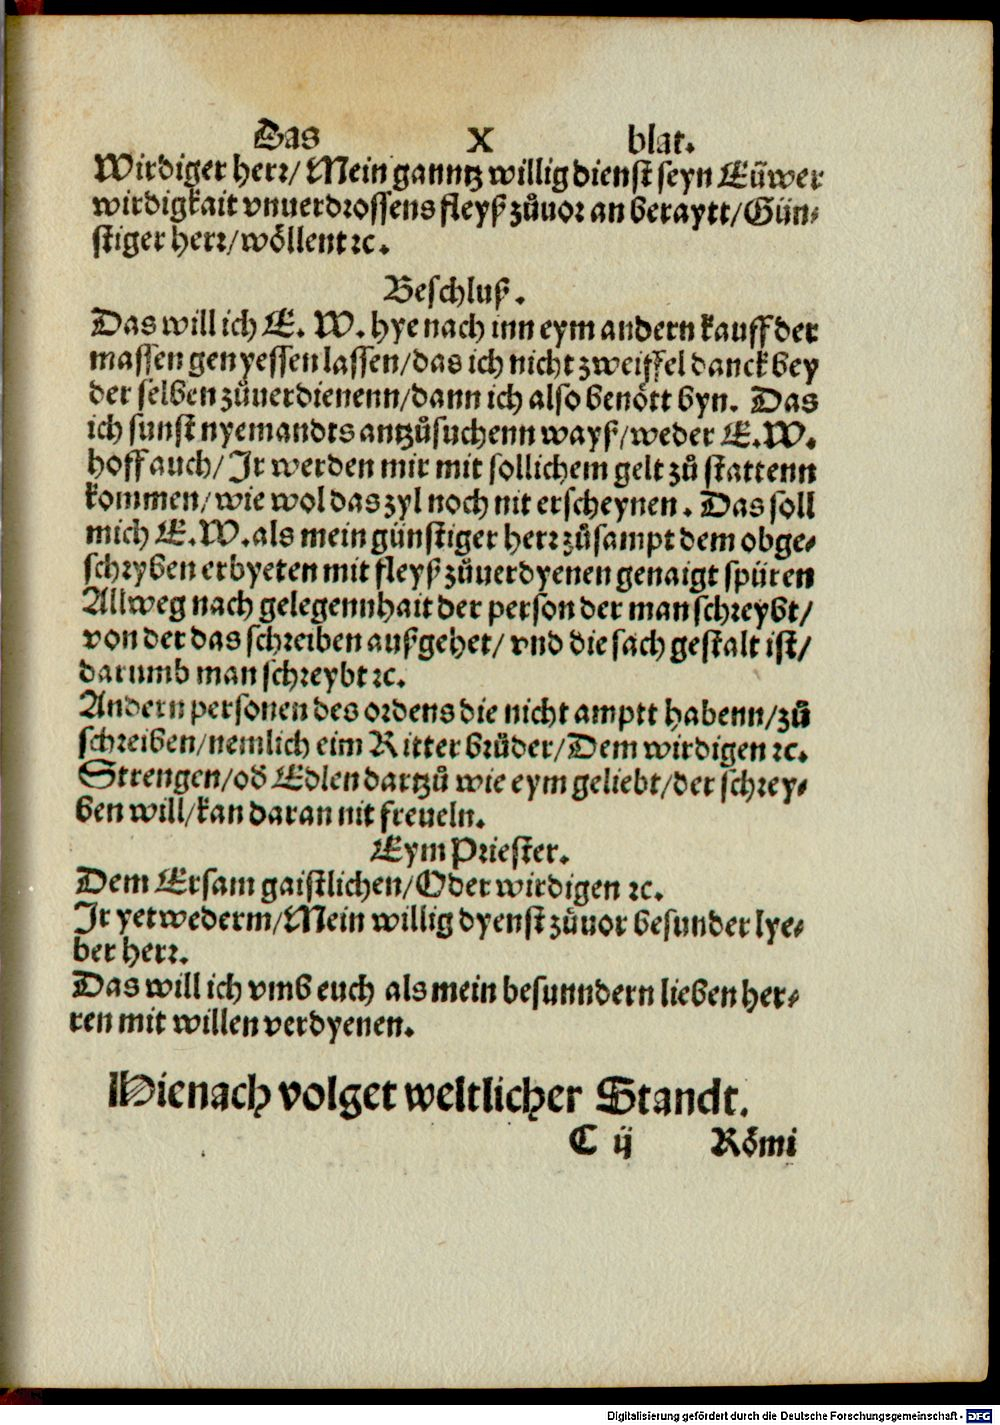 Das X blat.
Wirdiger herr/ Mein ganntz willig dienst seyn Eüwer
wirdigkait vnuerdrossens fleyß zůuor an beraytt/ Gün⸗
stiger herr/ wöllent ꝛc.
Beschluß.
Das will ich E. W. hye nach inn eym andern kauff der
massen genyessen lassen/ das ich nicht zweiffel danck bey
der selben zůuerdienenn/ dann ich also benött byn. Das
ich sunst nyemandts antzůsuchenn wayß/ weder E. W.
hoff auch/ Jr werden mir mit sollichem gelt zů stattenn
kommen/ wie wol das zyl noch nit erscheynen. Das soll
mich E. W. als mein günstiger herr zůsampt dem obge⸗
schryben erbyeten mit fleyß zůuerdyenen genaigt spüren
Allweg nach gelegennhait der person der man schreybt/
von der das schreiben außgehet/ vnd die sach gestalt ist/
darumb man schreybt ꝛc.
Andern personen des ordens die nicht amptt habenn/ zů
schreiben/ nemlich eim Ritter brůder/ Dem wirdigen ꝛc.
Strengen/ od̄ Edlen dartzů wie eym geliebt/ der schrey⸗
ben will/ kan daran nit freueln.
Eym Priester.
Dem Ersam gaistlichen/ Oder wirdigen ꝛc.
Jr yetwederm/ Mein willig dyenst zůuor besunder lye⸗
ber herr.
Das will ich vmb euch als mein besunndern lieben her⸗
ren mit willen verdyenen.
Hienach volget weltlicher Standt.
C ij Römi
Digitalisierung gefördert durch die Deutsche Forschungsgemeinschaft - DFG